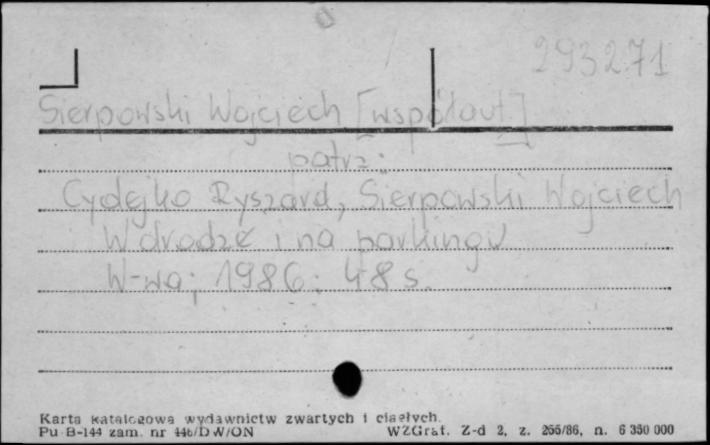 293271
Sierpowski Wojciech [współaut.]
patrz:
Cydejko Ryszard, Sierpowski Wojciech
W drodze i na parkingu
W-wa; 1986; 48 s.
Karta katalogowa wydawnictw zwartych i ciągłych.
Pu-B-144 zam. nr 446/DW/ON WZGraf. Z-d 2, z. 255/86, n. 6 350 000